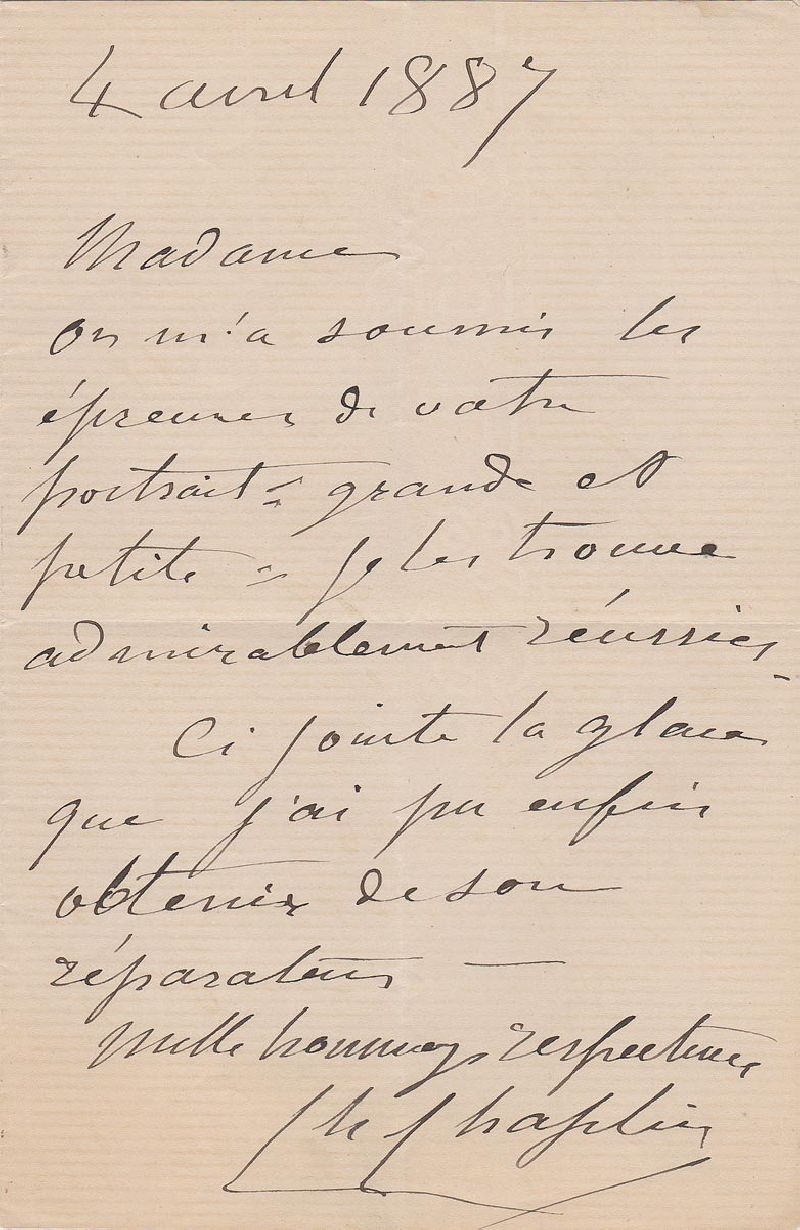 4 avril 1887
Madame
on m'a soumis les
épreuves de votre
portrait = grande et
petite = Je les trouve
admirablement réussies -
Ci jointe la glace
que j'ai pu enfin
obtenir de son
réparateur —
mille hommages respectueux
Ch Chaplin